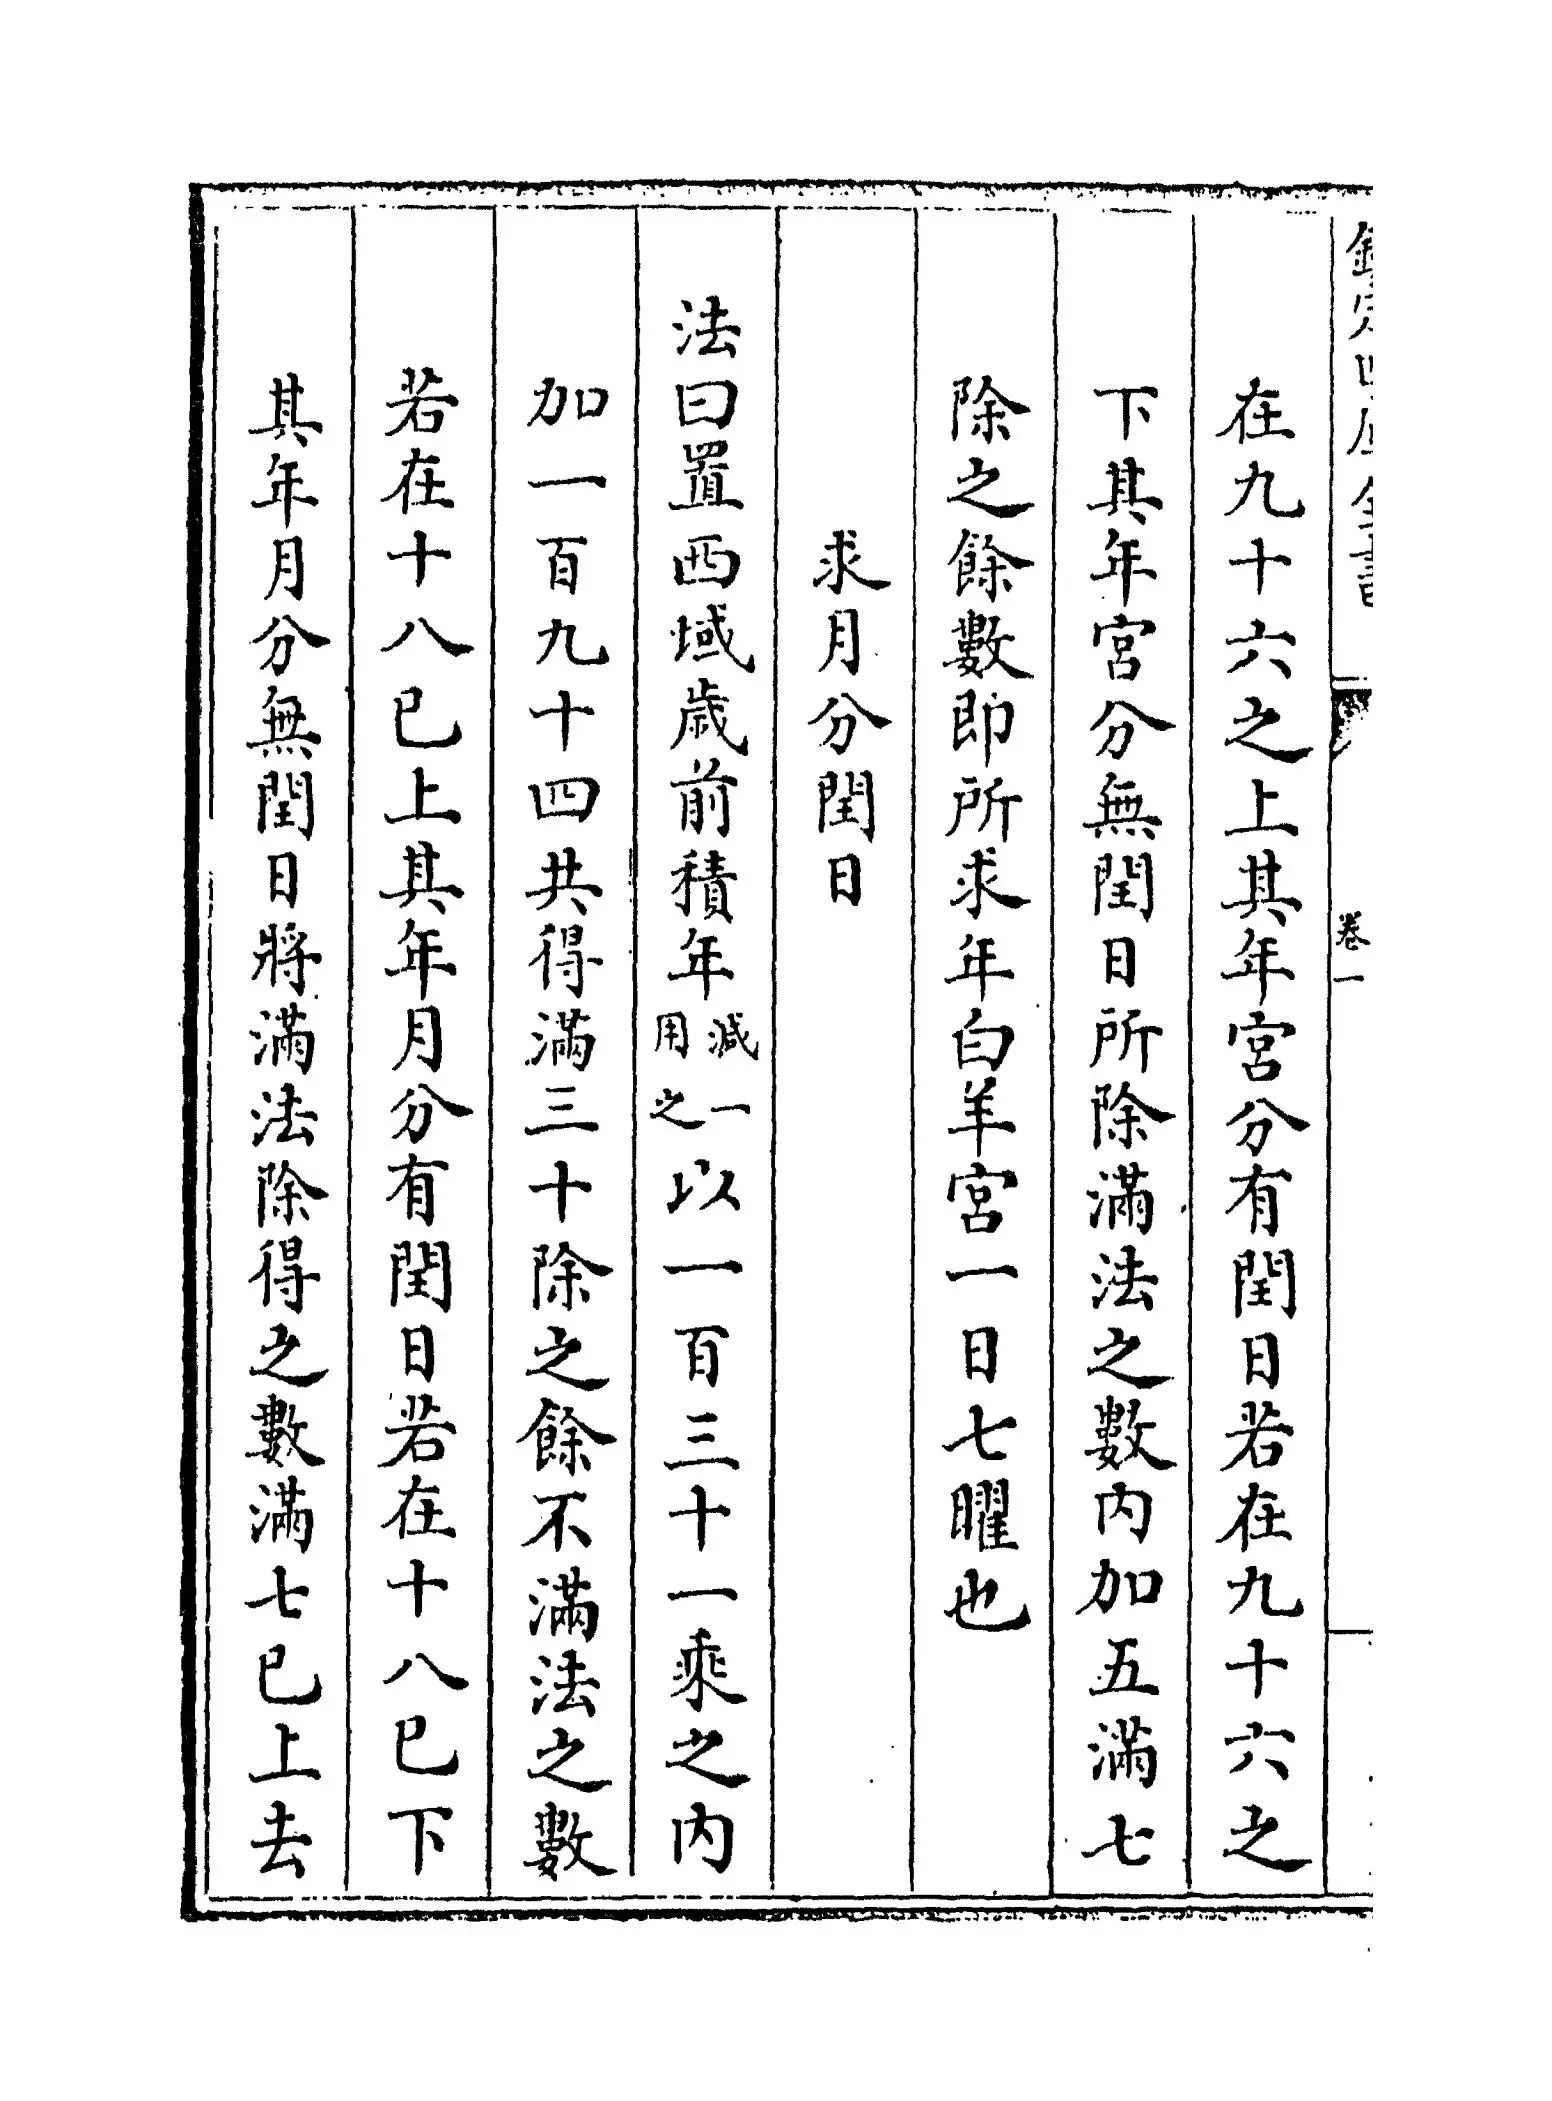 欽定四庫全書
卷一
在九十六之上其年宮分有閏日若在九十六之
下其年宮分無閏日所除滿法之數内加五滿七
除之餘數即所求年白羊宮一日七曜也
求月分閏日
法曰置西域歲前積年減一用之以一百三十一乘之内
加一百九十四共得滿三十除之餘不滿法之數
若在十八已上其年月分有閏日若在十八已下
其年月分無閏日將滿法除得之數滿七已上去